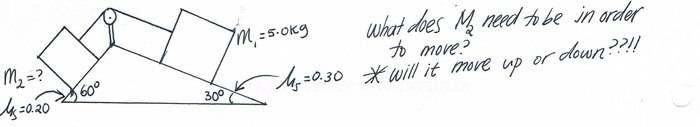 M₁=5.0kg
M₂=?
μs=0.20
60°
30°
μs=0.30
What does M₂ need to be in order
to move?
* will it move up or down??!!